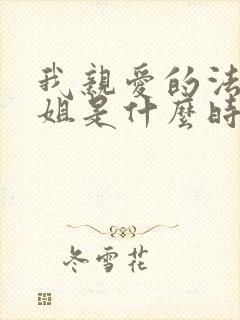 我親愛的法
姐是什麼時
冬雪花